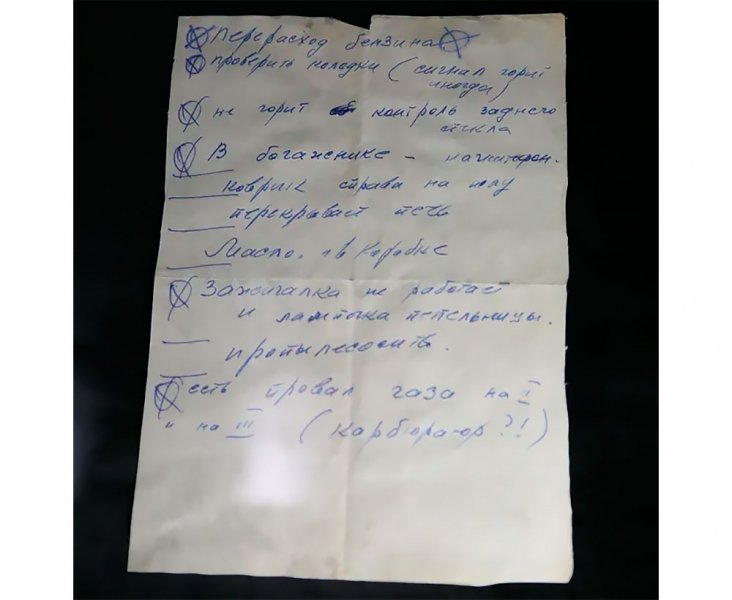 Перерасход бензина
проверить колодки (сигнал горит
иногда)
не горит контроль заднего
стекла
В богажнике –
коврик справа на полу
перекрывает печь
Масло, в коробке
Зажигалка не работает
и лампочка пепельницы.
пропылесосить.
есть провал газа на II
и на III (карбюратор?!)